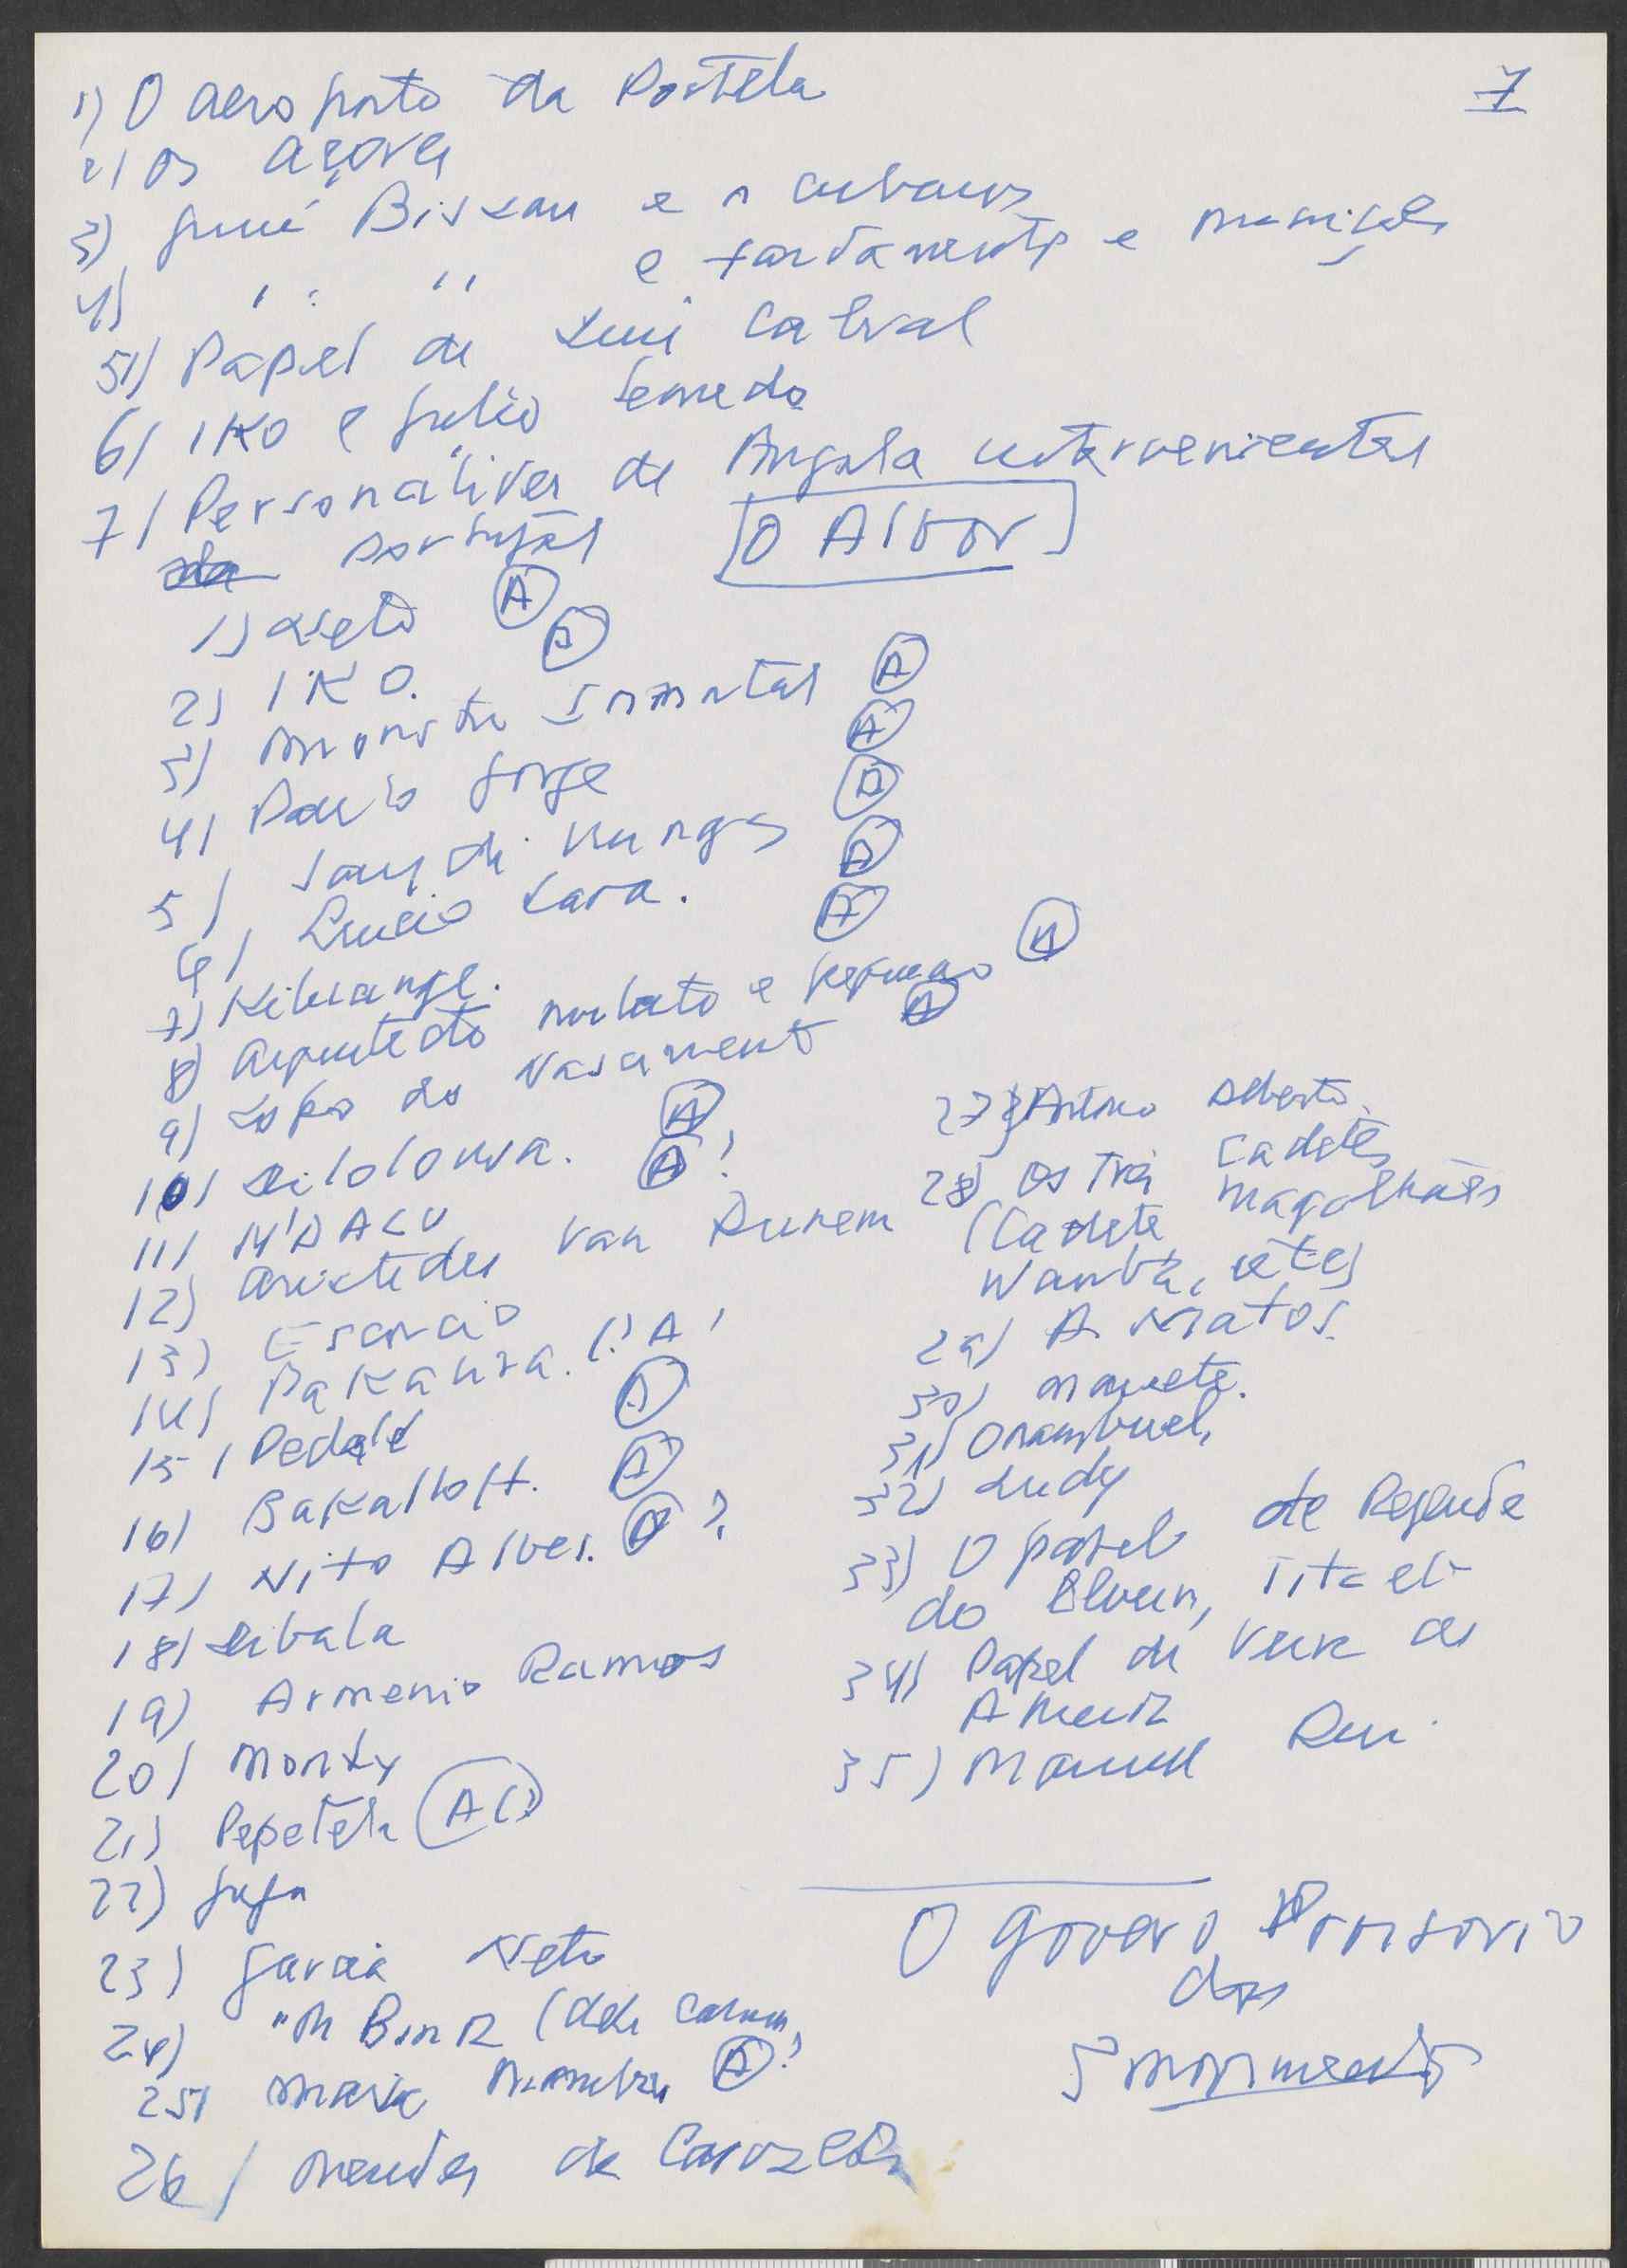 7
1) O aeroporto da Portela
2) Os Açores
3) Guiné Bissau e os cubanos
4) " " " e fardamentos e munições
5) Papel de Luis Cabral
6) IKO e Julio Semedo
7) Personalidades de Angola intervenientes
da Portugal [O Alvor]
1) Neto (A)
2) IKO. (A)
3) Monstro Imortal (A)
4) Paulo Jorge (A)
5) Saydi Mingas (A)
6) Lucio Lara. (A)
7) Kiluange. (A)
8) Arquitecto mulato e pequeno (A)
9) Lopo do Nascimento (A)
10) Dilolowa. (A)
11) N'DALU (A)?
12) Aristides Van Dunem
13) Escorcio
14) Pakawza. (? A)
15) Pedalé (A)
16) Bakaloff. (A)
17) Nito Alves. (A)?
18) Dibala
19) Armenio Ramos
20) Monty
21) Pepetela (A(?))
22) Juju
23) Garcia Neto
24) (dede
25) Maria (A)?
26) Mendes de Carvalho
27) Artur Alberto.
28) Os Três Cadetes
(Cadete Magalhães
etc)
29) A. Matos.
30)
31) Onambwe
32) Ludy
33) O papel de Resende
do Tita etc
34) Papel de Vera de
Almeida
35) Manuel Rui.
O Governo Provisorio
dos
3 movimentos